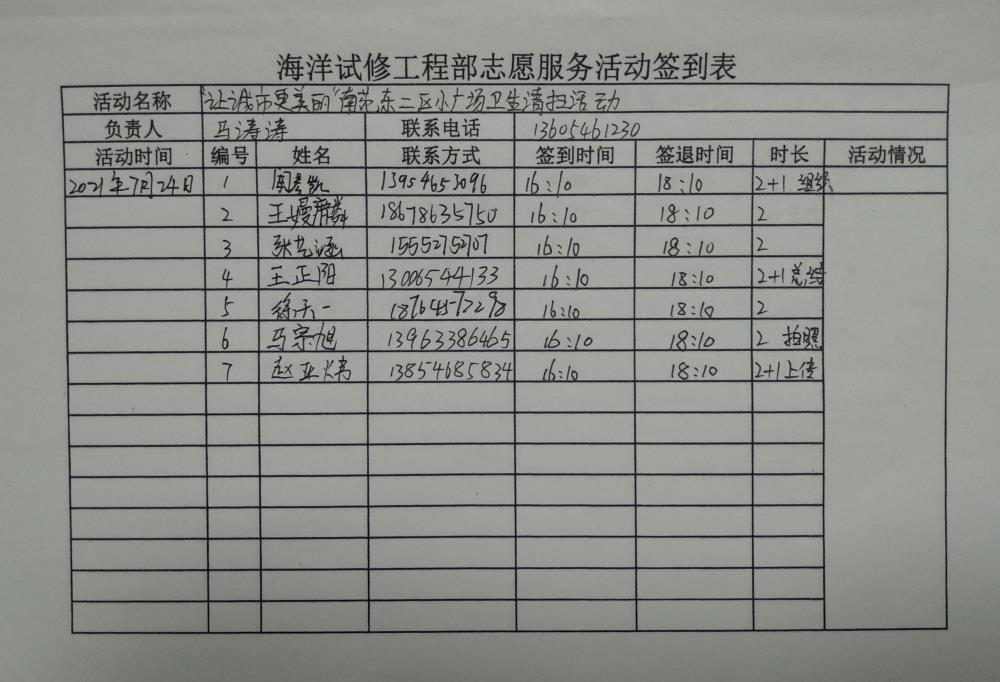 海洋试修工程部志愿服务活动签到表
活动名称 "让城市更美丽"南苑东二区小广场卫生清扫活动
负责人 马涛涛 联系电话 13605461230
活动时间 编号 姓名 联系方式 签到时间 签退时间 时长 活动情况
2021年7月24日 1 周彦凯 13954653096 16:10 18:10 2+1 组织
2 王嫚 18678635750 16:10 18:10 2
3 张艺涵 15552752707 16:10 18:10 2
4 王正阳 13006544133 16:10 18:10 2+1总结
5 徐天一 18764572298 16:10 18:10 2
6 马宗旭 13963386465 16:10 18:10 2 拍照
7 赵亚炜 13854685834 16:10 18:10 2+1上传